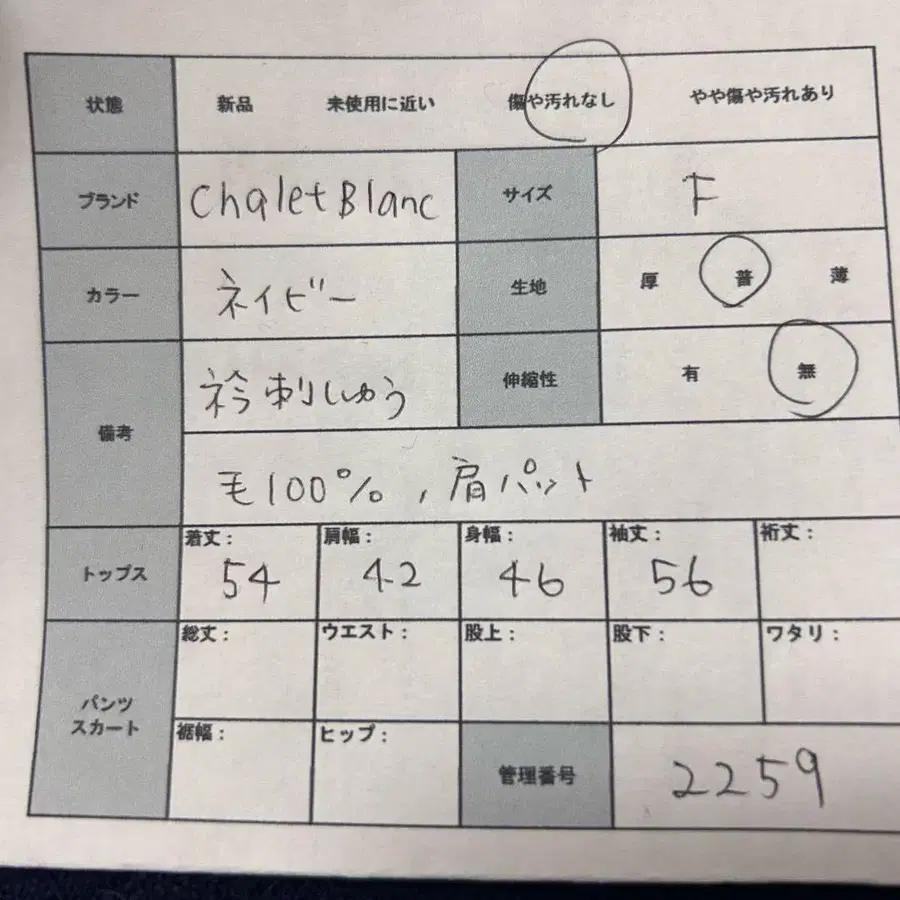 状態 新品 未使用に近い 傷や汚れなし やや傷や汚れあり
ブランド Chalet Blanc サイズ F
カラー ネイビー 生地 厚 普 薄
備考 衿刺しゅう 伸縮性 有 無
毛100%, 肩パット
トップス 着丈: 54 肩幅: 42 身幅: 46 袖丈: 56 裄丈:
パンツ スカート 総丈: ウエスト: 股上: 股下: ワタリ:
裾幅: ヒップ: 管理番号 2259